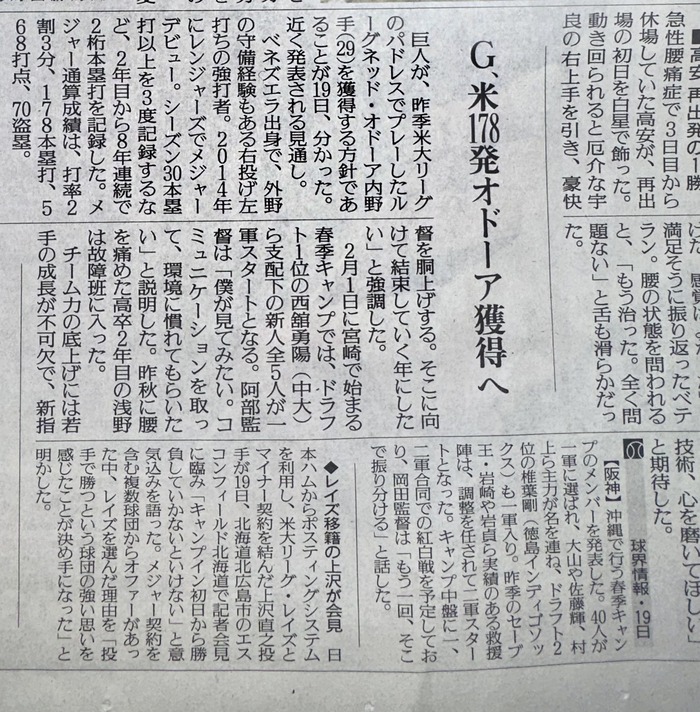 ■高安、再出発の1勝
急性腰痛症で3日目から
休場していた高安が、再出
場の初日を白星で飾った。
動き回られると厄介な宇
良の右上手を引き、豪快
満足そうに振り返ったベテ
ラン。腰の状態を問われる
と、「もう治った。全く問
題ない」と舌も滑らかだっ
た。
技術、心を磨いてほしい」
と期待した。
G、米178発オドーア獲得へ
巨人が、昨季米大リーグ
のパドレスでプレーしたル
ーグネッド・オドーア内野
手(29)を獲得する方針であ
ることが19日、分かった。
近く発表される見通し。
ベネズエラ出身で、外野
の守備経験もある右投げ左
打ちの強打者。2014年
にレンジャーズでメジャー
デビュー。シーズン30本塁
打以上を3度記録するな
ど、2年目から8年連続で
2桁本塁打を記録した。メ
ジャー通算成績は、打率2
割3分、178本塁打、5
68打点、70盗塁。
督を胴上げする。そこに向
けて結束していく年にした
い」と強調した。
2月1日に宮崎で始まる
春季キャンプでは、ドラフ
ト1位の西舘勇陽(中大)
ら支配下の新人全5人が一
軍スタートとなる。阿部監
督は「僕が見てみたい。コ
ミュニケーションを取っ
て、環境に慣れてもらいた
い」と説明した。昨秋に腰
を痛めた高卒2年目の浅野
は故障班に入った。
チーム力の底上げには若
手の成長が不可欠で、新指
球界情報・19日
【阪神】沖縄で行う春季キャン
プのメンバーを発表した。40人が
一軍に選ばれ、大山や佐藤輝、村
上ら主力が名を連ね、ドラフト2
位の椎葉剛(徳島インディゴソッ
クス)も一軍入り。昨季のセーブ
王・岩崎や岩貞ら実績のある救援
陣は、調整を任されて二軍スター
トとなった。キャンプ中盤に一、
二軍合同での紅白戦を予定してお
り、岡田監督は「もう一回、そこ
で振り分ける」と話した。
◆レイズ移籍の上沢が会見 日
本ハムからポスティングシステム
を利用し、米大リーグ・レイズと
マイナー契約を結んだ上沢直之投
手が19日、北海道北広島市のエス
コンフィールド北海道で記者会見
に臨み「キャンプイン初日から勝
負していかないといけない」と意
気込みを語った。メジャー契約を
含む複数球団からオファーがあっ
た中、レイズを選んだ理由を「投
手で勝つという球団の強い思いを
感じたことが決め手になった」と
明かした。